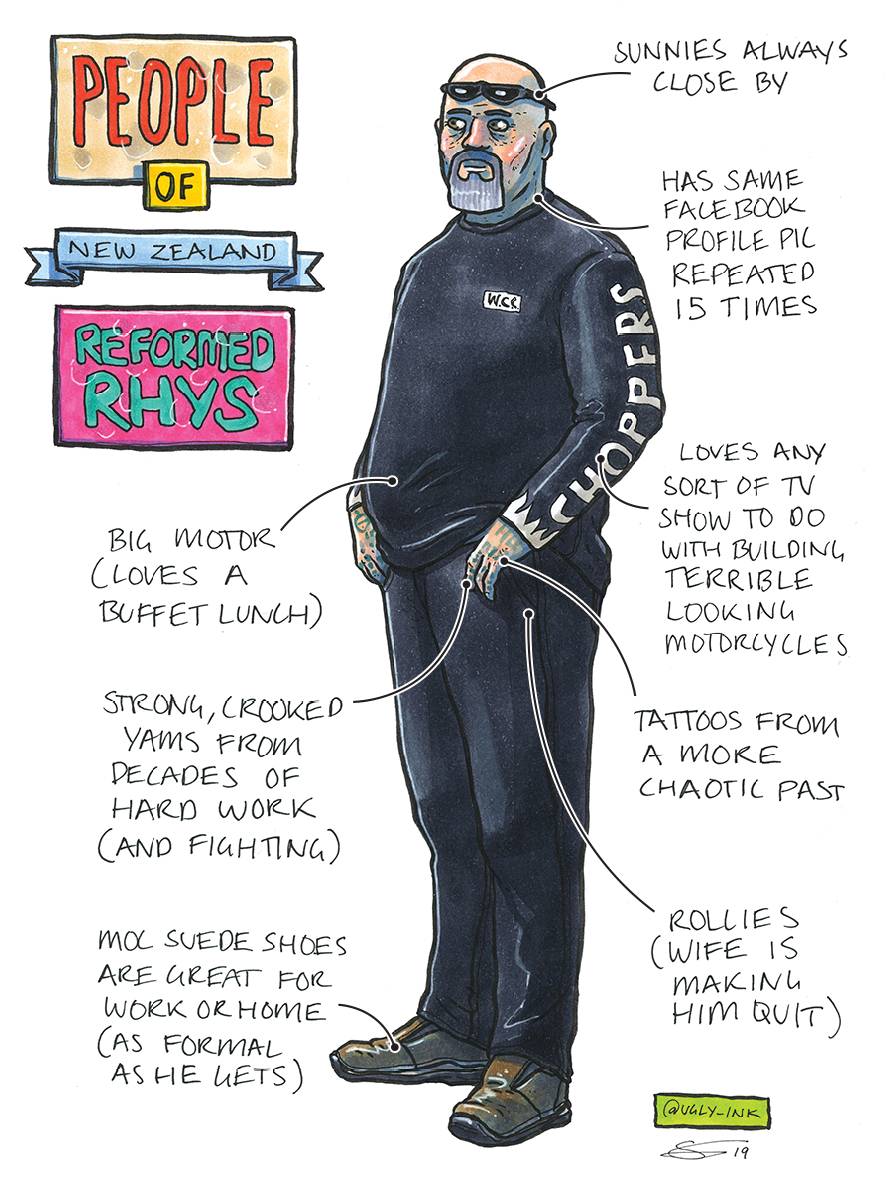 PEOPLE
OF
NEW ZEALAND
REFORMED
RHYS
SUNNIES ALWAYS
CLOSE BY
HAS SAME
FACEBOOK
PROFILE PIC
REPEATED
15 TIMES
W.C.C.
CHOPPERS
LOVES ANY
SORT OF TV
SHOW TO DO
WITH BUILDING
TERRIBLE
LOOKING
MOTORCYCLES
BIG MOTOR
(LOVES A
BUFFET LUNCH)
STRONG, CROOKED
YAMS FROM
DECADES OF
HARD WORK
(AND FIGHTING)
TATTOOS FROM
A MORE
CHAOTIC PAST
ROLLIES
(WIFE IS
MAKING
HIM QUIT)
MOC SUEDE SHOES
ARE GREAT FOR
WORK OR HOME
(AS FORMAL
AS HE GETS)
@UGLY_INK
19